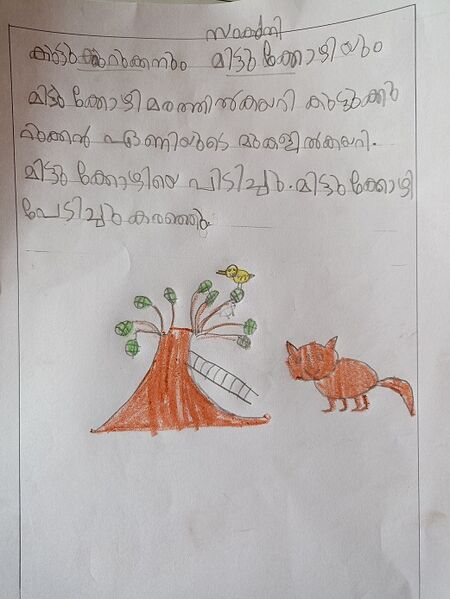 കുട്ടുക്കുറുക്കനും മിട്ടു ക്കോഴിയും
മിട്ടു ക്കോഴി മരത്തിൽകയറി കുട്ടുക്കു
റുക്കൻ ഏണിയുടെ മുകളിൽകയറി.
മിട്ടു ക്കോഴിയെ പിടിച്ചു. മിട്ടു ക്കോഴി
പേടിച്ചു കരഞ്ഞു.